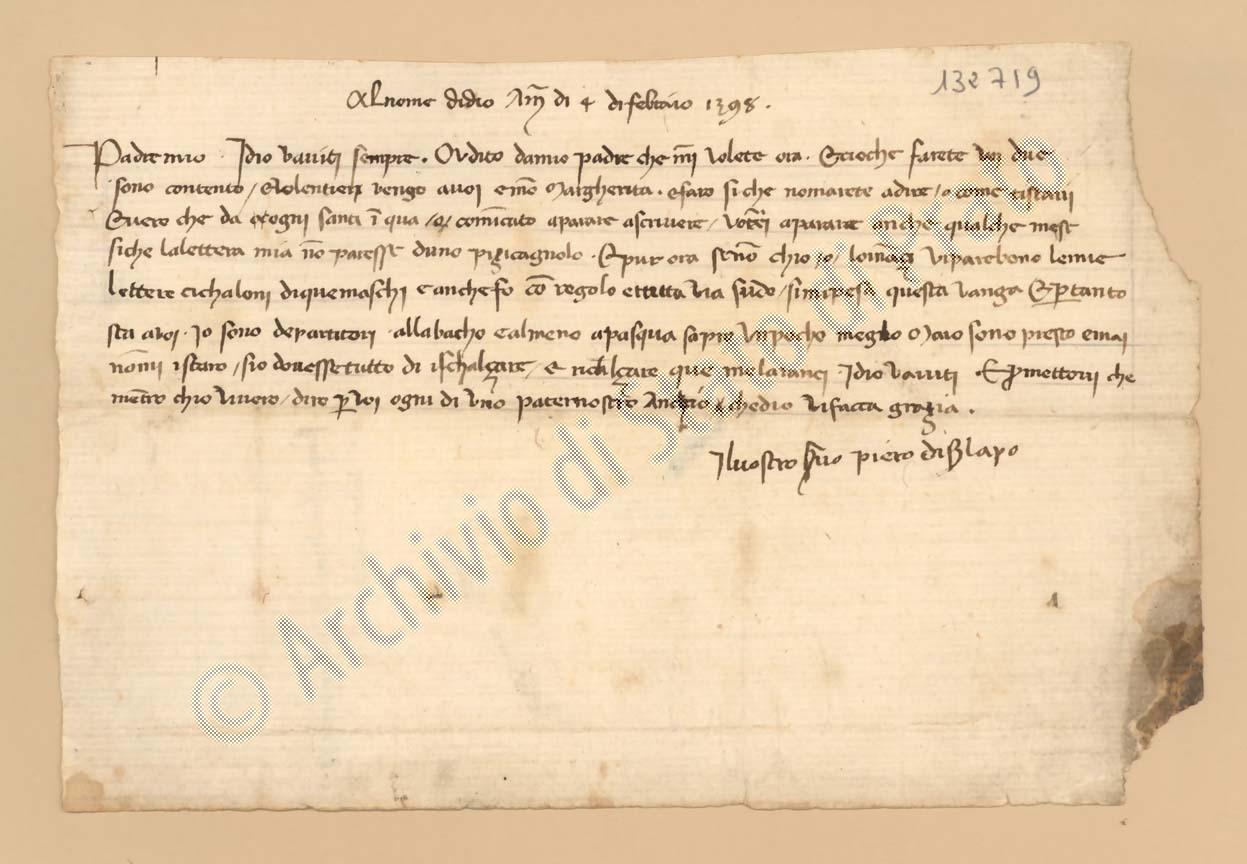 132719
Al nome di dio Am̄ di 4 di febraio 1398.
Padre mio. Idio vaiuti sempre. Oudito damio padre che mi volete ora. E cioche farete voi due
sono contento / e volentieri vengo avoi e mō Margherita. e faro siche nomarete adire / o come tistavi
E vero che da ogni santi ī qua / o comīcato aparare ascrivere / vorrei aparare anche qualche mese
siche lalettera mia nō paresse duno pizicagnolo. E pur ora senō chio / o / loināzi viparebono lemie
lettere cichaloni diquemaschi e anche fo cō regolo e tutta via sudo / simipesa questa vanga E p tanto
sta avoi. Io sono departitori allabacho e almeno apasqua sapro unpocho meglio Maio sono presto e mai
nōmi istaro / sio dovesse tutto di ischalzare / e richalzare que melaranci Idio vaiuti E p mettovi che
mētro chio vivero / diro p voi ogni di uno paternostro Ancio chedio vifacca grazia.
Ilvostro suo piero di Blaxo
© Archivio di Stato di Prato